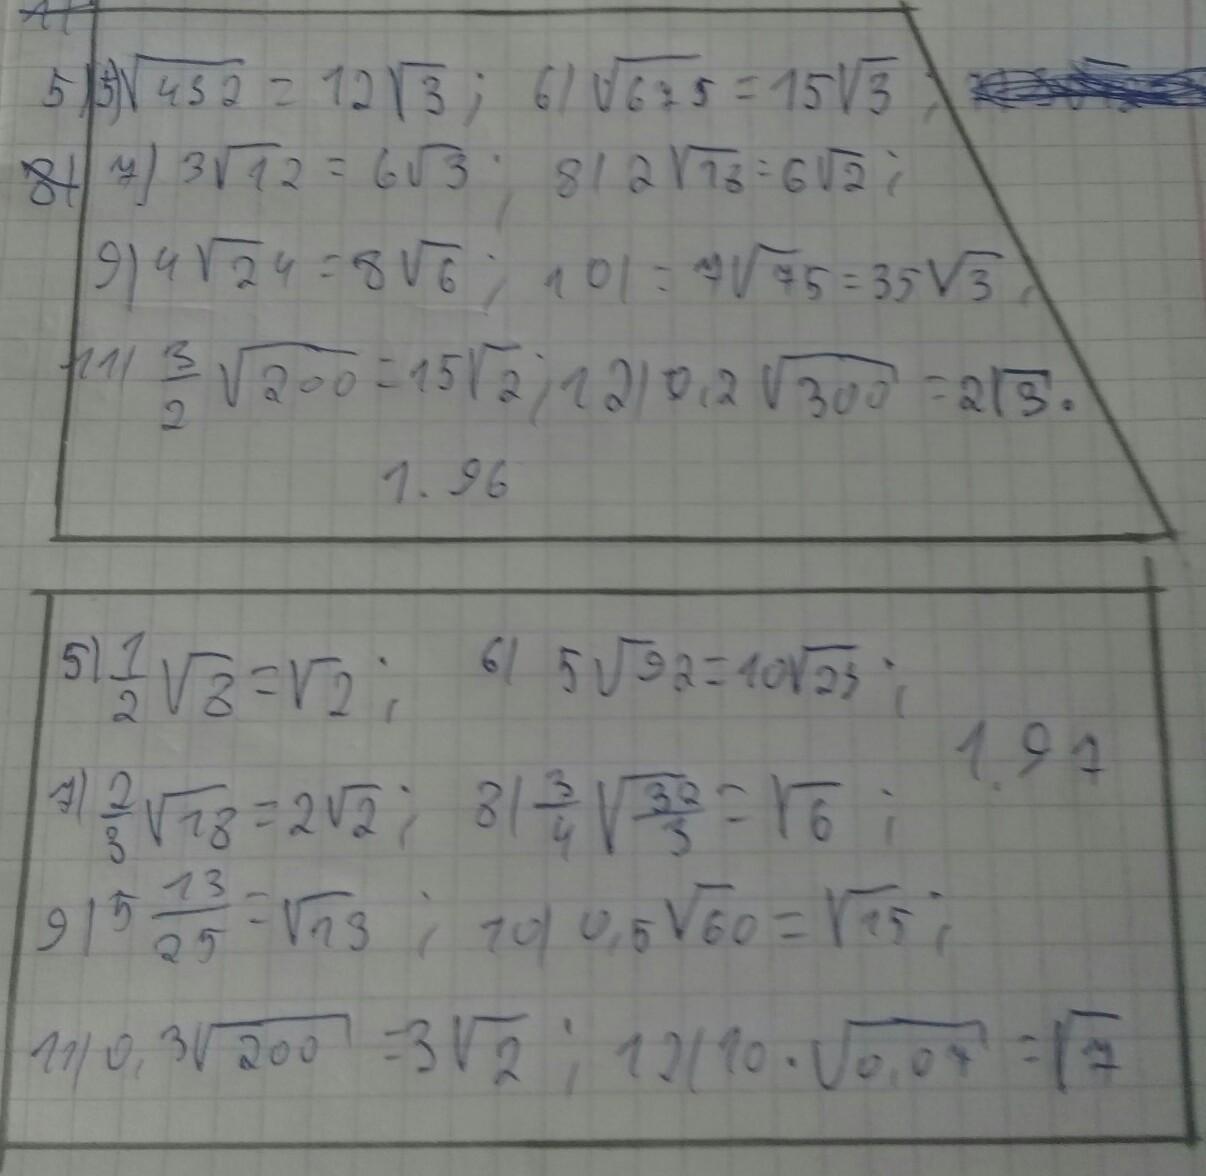 5) √432 = 12√3; 6) √675 = 15√3;
7) 3√12 = 6√3; 8) 2√18 = 6√2;
9) 4√24 = 8√6; 10) = 7√75 = 35√3;
11) 3/2 √200 = 15√2; 12) 0,2√300 = 2√3.
1.96
5) 1/2 √8 = √2; 6) 5√92 = 10√23;
1.97
7) 2/3 √18 = 2√2; 8) 3/4 √32/3 = √6;
9) 5 13/25 = √13; 10) 0,5√60 = √15;
11) 0,3√200 = 3√2; 12) 10 · √0,07 = √7